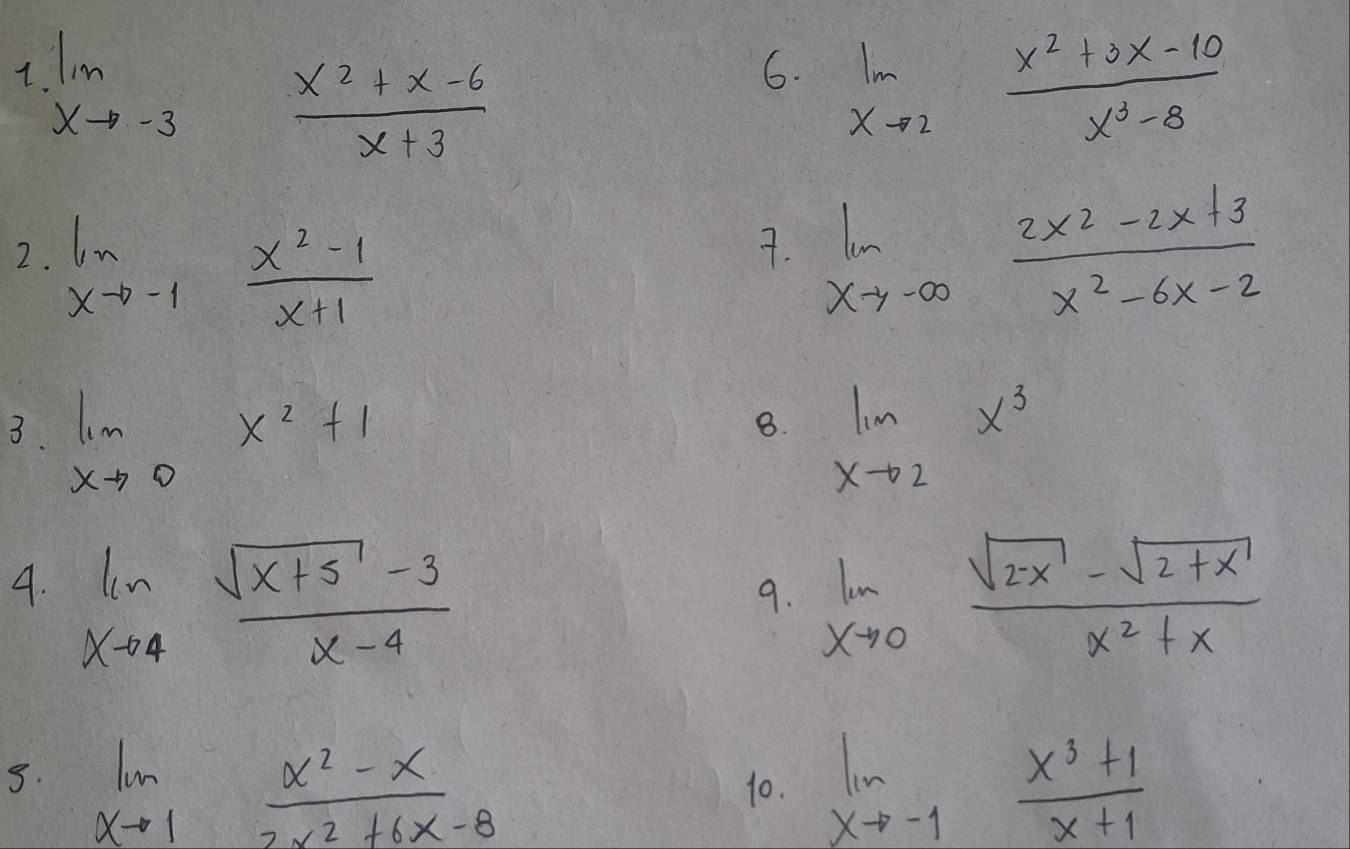 1. lim x→-3 (x² + x - 6)/(x + 3)
2. lim x→-1 (x² - 1)/(x + 1)
3. lim x→0 x² + 1
4. lim x→4 (√(x+5) - 3)/(x - 4)
5. lim x→1 (x² - x)/(2x² + 6x - 8)
6. lim x→2 (x² + 3x - 10)/(x³ - 8)
7. lim x→-∞ (2x² - 2x + 3)/(x² - 6x - 2)
8. lim x→2 x³
9. lim x→0 (√(2-x) - √(2+x))/(x² + x)
10. lim x→-1 (x³ + 1)/(x + 1)